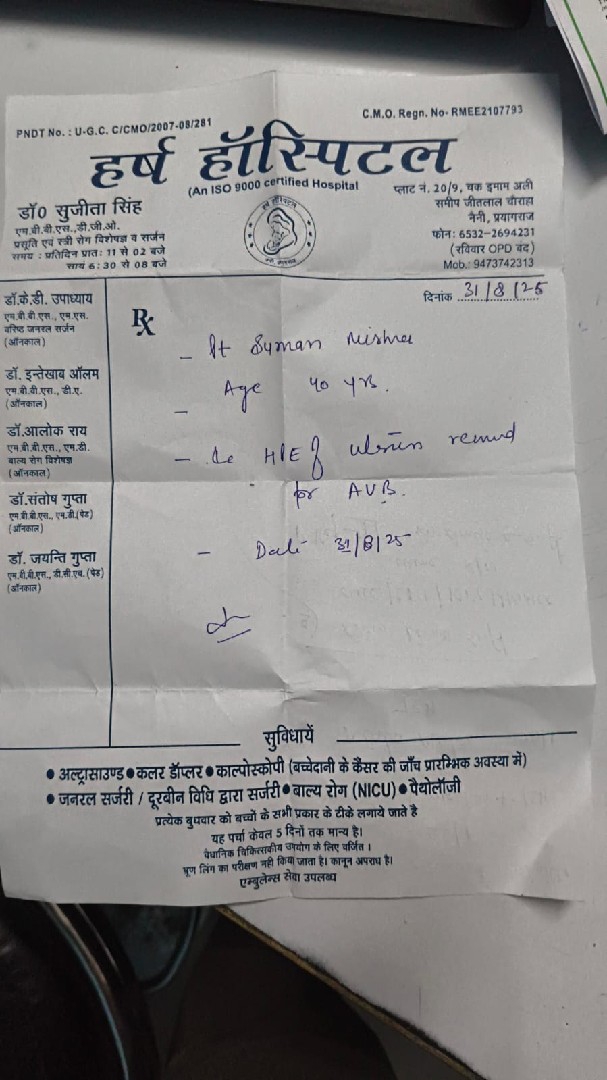 PNDT No. : U-G.C. C/CMO/2007-08/281
C.M.O. Regn. No- RMEE2107793
हर्ष हॉस्पिटल
(An ISO 9000 certified Hospital
डॉ0 सुजीता सिंह
एम.बी.बी.एस.,डी.जी.ओ.
प्रसूति एवं स्त्री रोग विशेषज्ञ व सर्जन
समय : प्रतिदिन प्रातः 11 से 02 बजे
सायं 6:30 से 08 बजे
प्लाट नं. 20/9, चक इमाम अली
समीप जीतलाल चौराहा
नैनी, प्रयागराज
फोन: 6532-2694231
(रविवार OPD बंद)
Mob. 9473742313
दिनांक 31/8/25
डॉ.के.डी. उपाध्याय
एम.बी.बी.एस., एम.एस.
वरिष्ठ जनरल सर्जन
(ऑनकाल)
डॉ. इन्तेखाब ऑलम
एम.बी.बी.एस., डी.ए.
(ऑनकाल)
डॉ.आलोक राय
एम.बी.बी.एस., एम.डी.
बाल्य रोग विशेषज्ञ
(ऑनकाल)
डॉ.संतोष गुप्ता
एम.बी.बी.एस., एम.डी.(पेड)
(ऑनकाल)
डॉ. जयन्ति गुप्ता
एम.बी.बी.एस., डी.सी.एच. (पेड)
(ऑनकाल)
Rx
- Pt Suman Mishra
- Age 40 yrs.
- HPE of uterus removed
for AUB.
- Date 31/8/25
सुविधायें
● अल्ट्रासाउण्ड ● कलर डॉप्लर ● काल्पोस्कोपी (बच्चेदानी के कैंसर की जाँच प्रारम्भिक अवस्था में)
● जनरल सर्जरी / दूरबीन विधि द्वारा सर्जरी ● बाल्य रोग (NICU) ● पैथोलॉजी
प्रत्येक बुधवार को बच्चों के सभी प्रकार के टीके लगाये जाते है
यह पर्चा केवल 5 दिनों तक मान्य है।
वैधानिक चिकित्सकीय उपयोग के लिए वर्जित ।
भ्रूण लिंग का परीक्षण नही किया जाता है। कानून अपराध है।
एम्बुलेन्स सेवा उपलब्ध